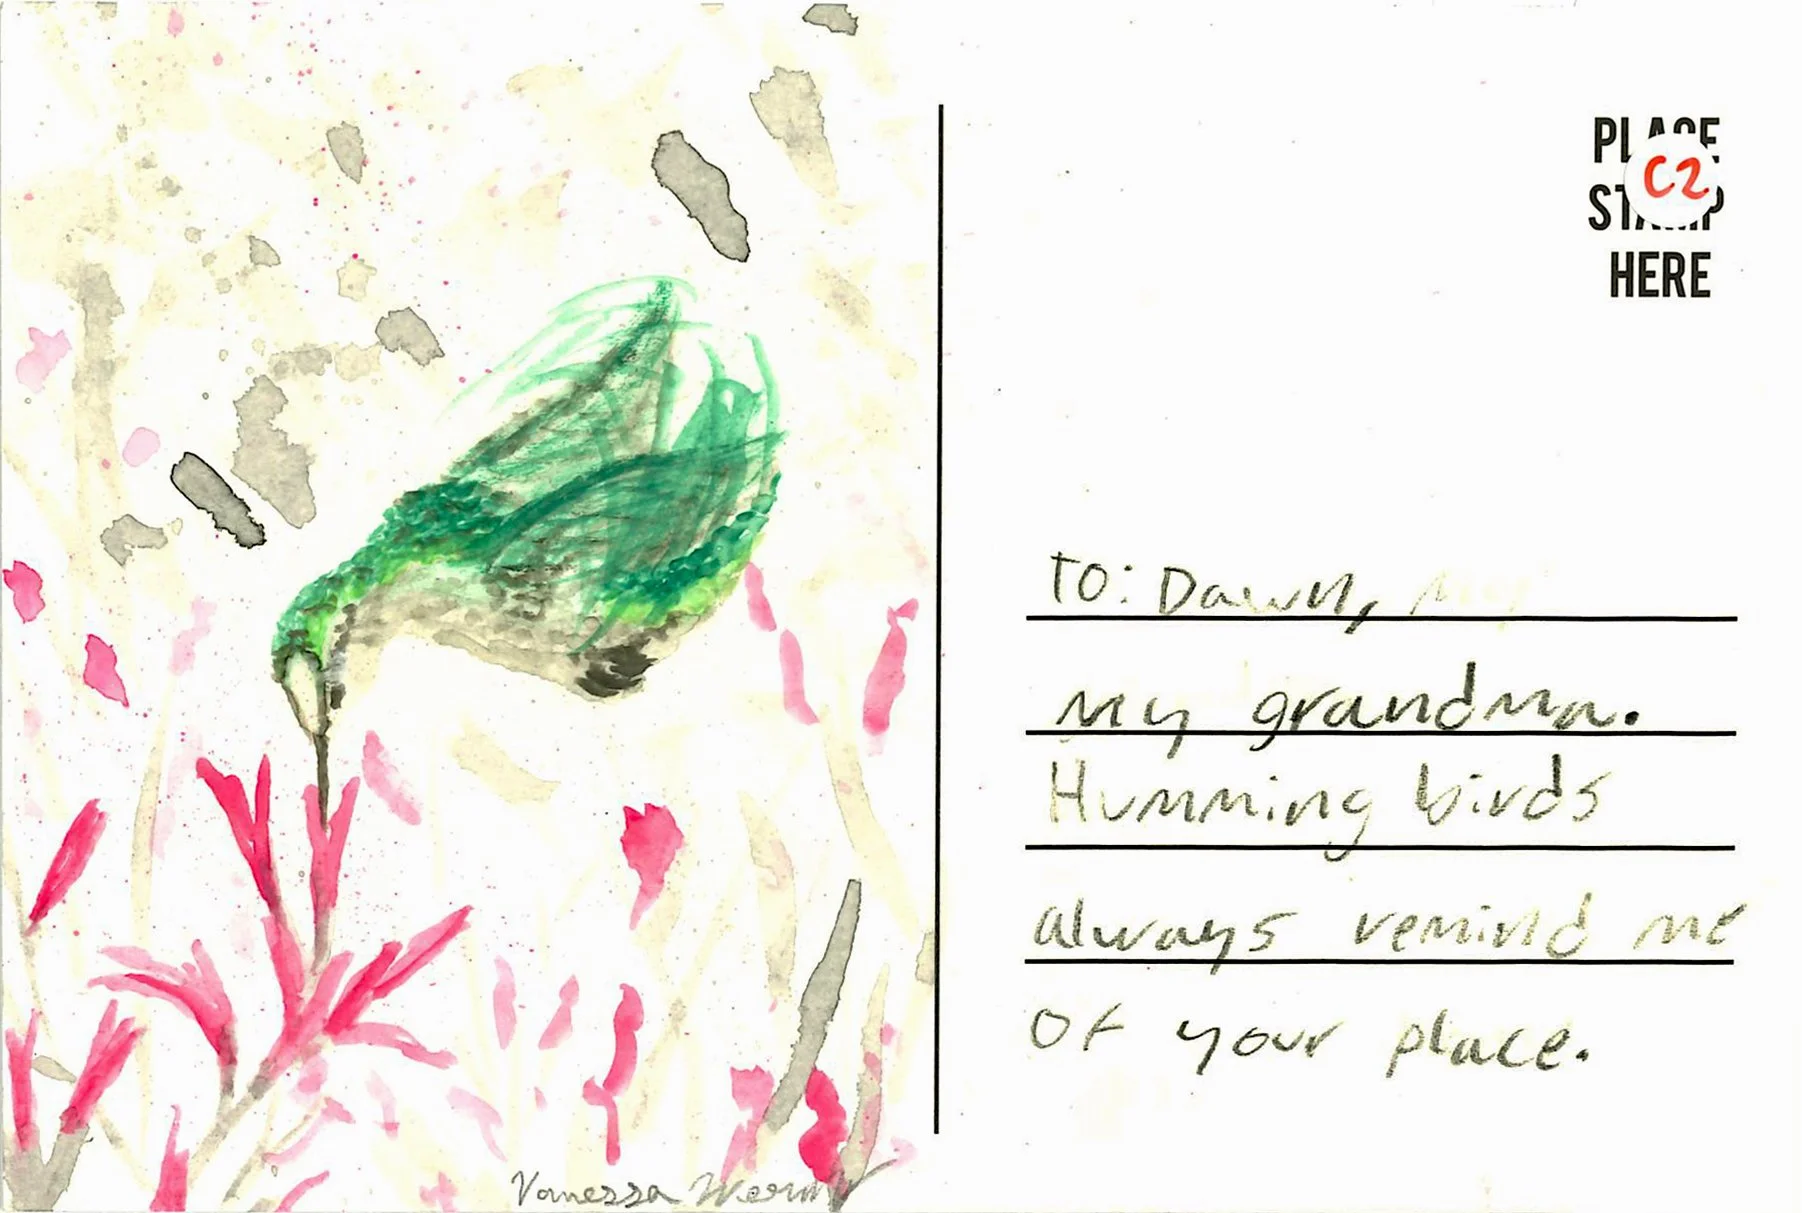 PLACE
C2
STAMP
HERE
To: Dawn, my
my grandma.
Humming birds
always remind me
of your place.
Vanessa